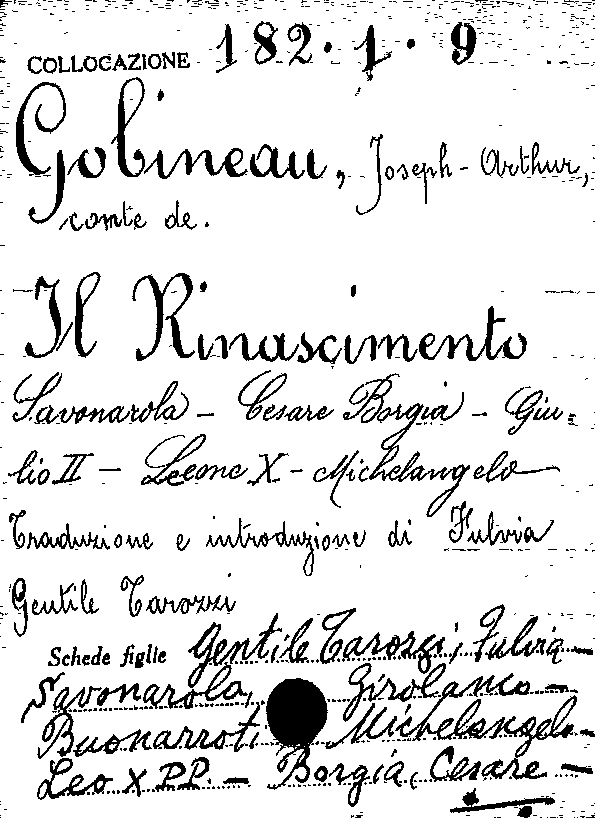 COLLOCAZIONE 182·1·9
Gobineau, Joseph-Arthur,
comte de.
Il Rinascimento
Savonarola – Cesare Borgia – Giu=
lio II – Leone X – Michelangelo
Traduzione e introduzione di Fulvia
Gentile Tarozzi
Schede figlie Gentile Tarozzi, Fulvia –
Savonarola, Girolamo –
Buonarroti Michelangelo –
Leo X PP. – Borgia, Cesare –